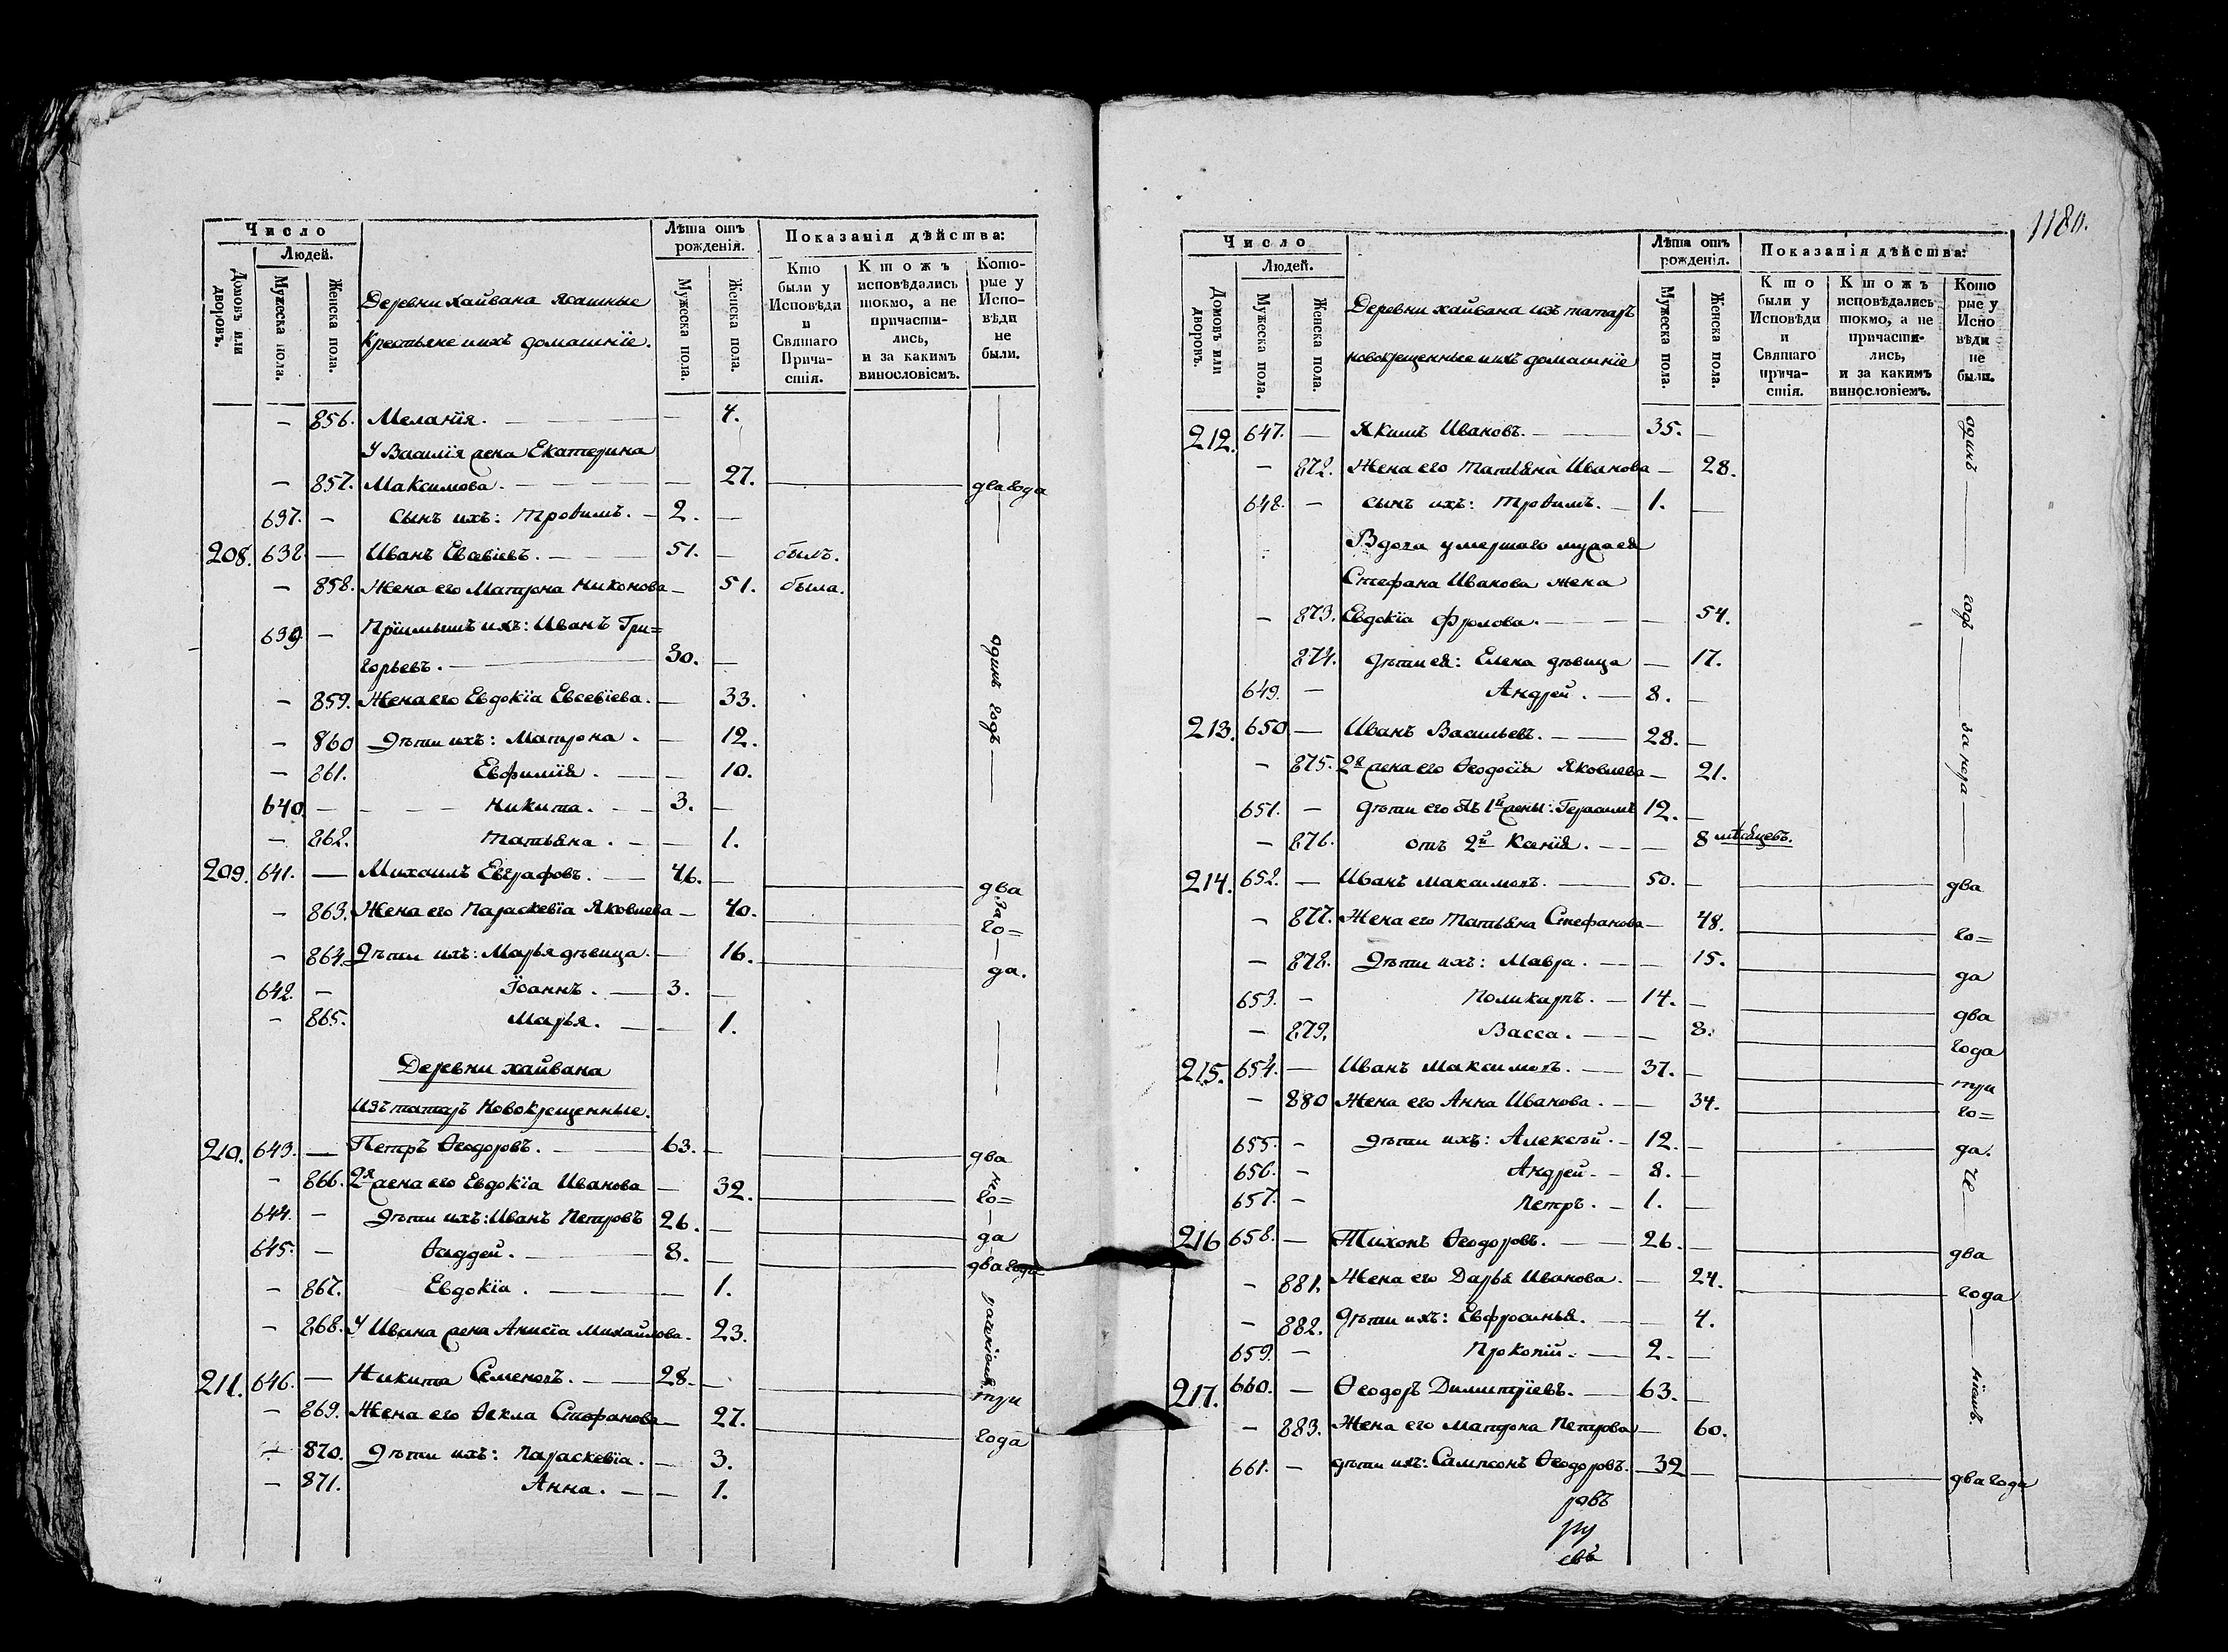 Число
Людей.
Домовъ или дворовъ.
Мужеска пола.
Женска пола.
Деревни хайвана ясашные
крестьяне и ихъ домашнїе.
Лѣта отъ рожденія.
Мужеска пола.
Женска пола.
Показанія дѣйства:
Кто были у Исповѣди и Святаго Прича-стія.
Ктожъ исповѣдались токмо, а не причасти-лись, и за какимъ винословіемъ.
Кото-рые у Испо-вѣди не были.
— 856. Меланїя. — — 4.
У Василїя жена Екатерина
— 857. Максимова. — — 27. два года
637. — Сынъ ихъ: Трофимъ. — 2. —
208. 638 — Иванъ Евсевїевъ. — 51. — былъ.
— 858. Жена его Матрона Никонова — 51. была.
639 — Прїимышъ ихъ: Иванъ Гри=
горьевъ. — 30. —
— 859. Жена его Евдокїа Евсевїева. — 33.
— 860 Дѣти ихъ: Матрона. — 12.
— 861. Евфимїя. — — 10.
640 — — — Никита. — 3. —
— 862. Татьяна. — — 1.
одинъ годъ
209. 641. — Михаилъ Евграфовъ. — 46. — два
— 863. Жена его Параскевїа Яковлева — 40. го=
— 864. Дѣти ихъ: Марья дѣвица. — 16. да.
За
642. — Їоаннъ. — 3. —
— 865. Марья. — — 1.
Деревни хайвана
Изъ татаръ Новокрещенные.
210. 643. — Петръ Ѳеодоровъ. — 63. — два
— 866. 2я жена его Евдокїа Иванова — 32. го=
644. — Дѣти ихъ: Иванъ Петровъ 26. — да
645. — Ѳаддей. — 8. — два года
— 867. Евдокїа. — — 1.
— 868. У Ивана жена Анисїа Михайлова. 23.
не
раченїемъ.
211. 646. — Никита Семеновъ. — 28. — три
— 869. Жена его Ѳекла Стефанова — 27. года
— 870. Дѣти ихъ: Параскевїа. — 3.
— 871. Анна. — — 1.
1180.
Число
Людей.
Домовъ или дворовъ.
Мужеска пола.
Женска пола.
Деревни хайвана изъ татаръ
новокрещенные и ихъ домашнїе
Лѣта отъ рожденія.
Мужеска пола.
Женска пола.
Показанія дѣйства:
Кто были у Исповѣди и Святаго прича-стія.
Ктожъ исповѣдались токмо, а не причасти-лись, и за какимъ винословіемъ.
Кото рые у Испо вѣди не были.
212. 647. — Якимъ Ивановъ. — 35. —
— 872. Жена его Татьяна Иванова — 28.
648. — сынъ ихъ: Трофимъ. — 1. —
Вдова умершаго
Стефана Иванова жена
— 873. Евдокїа Фролова. — — 54.
874. Дѣти ея: Елена дѣвица — 17.
649. — Андрей. — 8. —
213. 650 — Иванъ Васильевъ. — 28. —
— 875. 2я жена его Ѳеодосїа Яковлева — 21.
651. — Дѣти его отъ 1й жены: Герасимъ 12. —
— 876. отъ 2й Ксенїя. — — 8 мѣсяцевъ.
одинъ годъ за нера
214. 652. — Иванъ Максимовъ. — 50. — два
— 877. Жена его Татьяна Стефанова — 48. го=
— 878. Дѣти ихъ: Мавра. — — 15. да
653. — Поликарпъ. — 14. — два
— 879. Васса. — — 8. года
215. 654. — Иванъ Максимовъ. — 37. — три
— 880 Жена его Анна Иванова. — 34. го=
655. — Дѣти ихъ: Алексѣй. — 12. — да.
656. — Андрей. — 8. —
657. — Петръ. — 1. —
че
216 658. — Тихонъ Ѳеодоровъ. — 26. — два
— 881. Жена его Дарья Иванова. — 24. года
— 882. Дѣти ихъ: Евфросинья. — — 4.
659. — Прокопїй. — 2. —
нїемъ.
217. 660. — Ѳеодоръ Димитрїевъ. — 63. —
— 883. Жена его Матрона Петрова — 60.
661. — дѣти ихъ: Сампсонъ Ѳеодоровъ. — 32 — два года